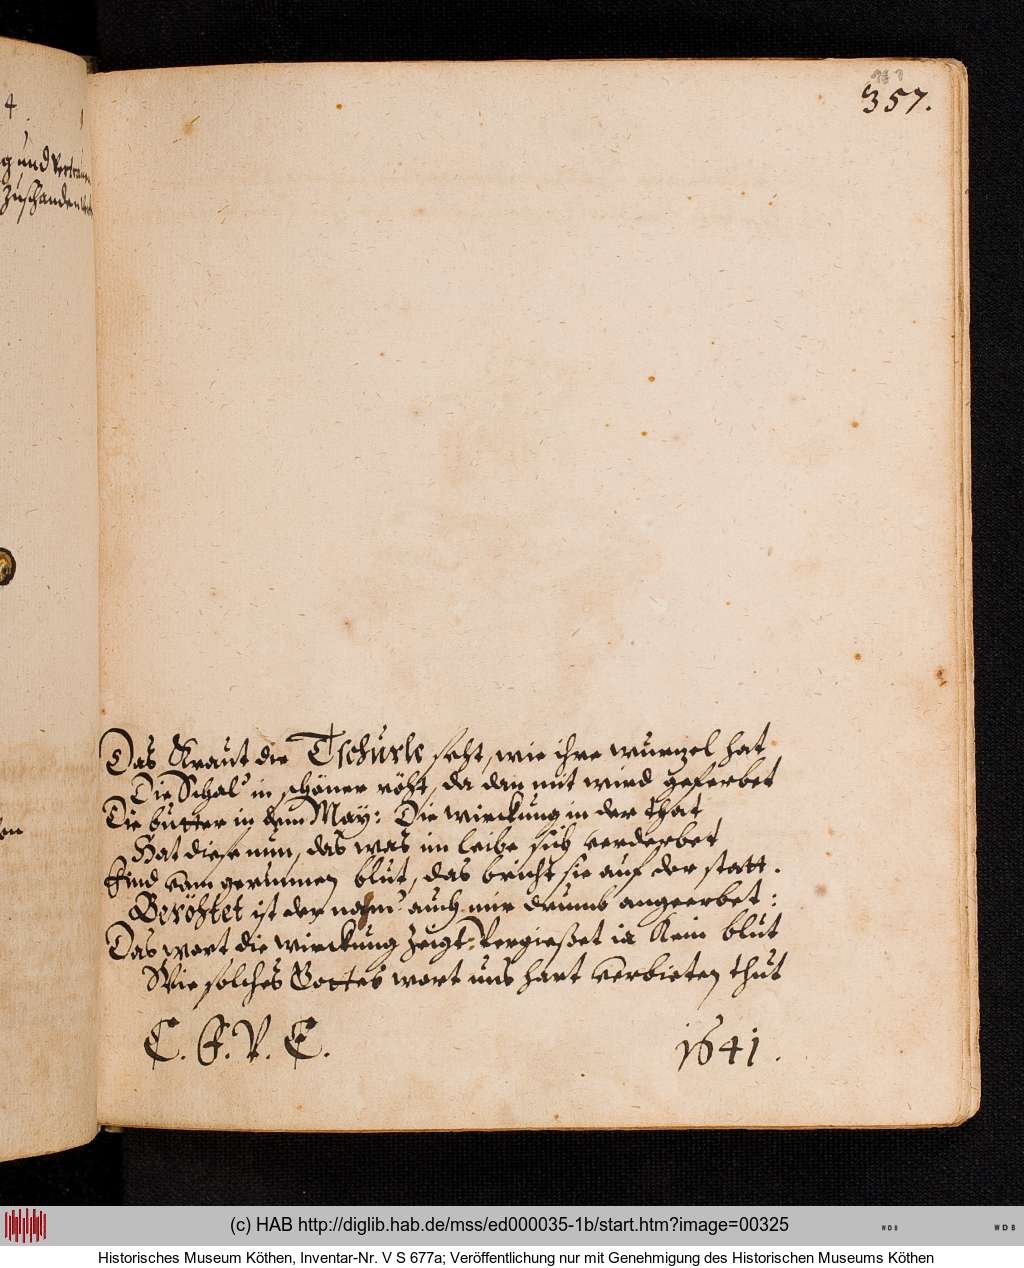 4
g und Vertrauen
Zuschanden
357.
Das Kraut die Tschurle seht, wie ihre wurzel hat
Die Schal' in schöner röht, da dan mit wird geferbet
Die butter in dem May: Die wirckung in der that
Hat diese nun, das was im leibe sich verderbet
Find vom gerunnen blut, das bricht sie auf der statt.
Geröhtet ist der nahm' auch mir drumb angeerbet:
Das wort die wirckung zeigt: Vergießet ia Kein blut
Wie solches Gottes wort uns hart verbieten thut
C. F. V. E.
1641.
(c) HAB http://diglib.hab.de/mss/ed000035-1b/start.htm?image=00325
WDB
WDB
Historisches Museum Köthen, Inventar-Nr. V S 677a; Veröffentlichung nur mit Genehmigung des Historischen Museums Köthen